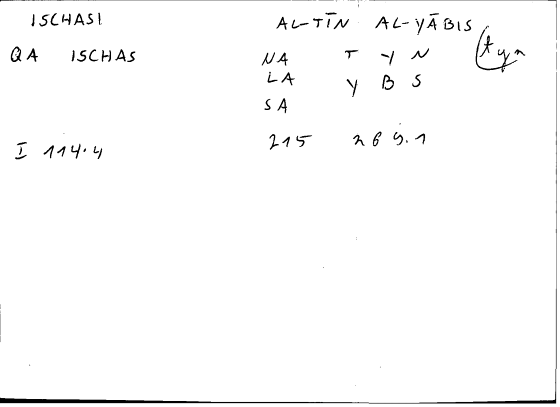 ISCHASI AL-TĪN AL-YĀBIS (tyn
QA ISCHAS NA T Y N
LA Y B S
SA
I 114.4 215 269.1